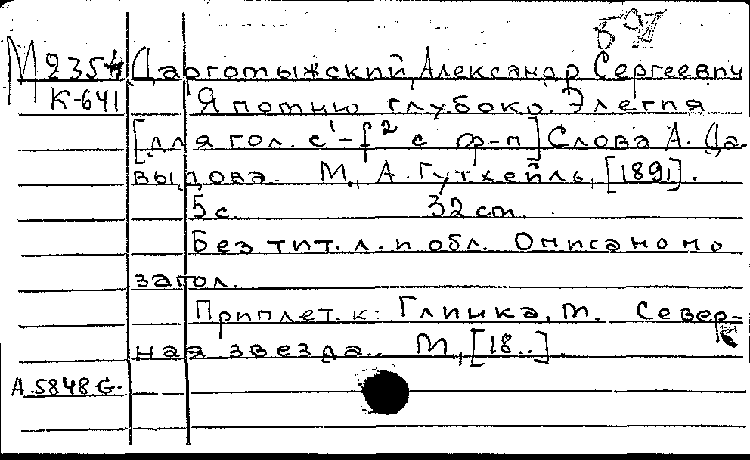 М 235 Даргомыжский, Александр Сергеевич
К-641 Я помню глубоко. Элегия
[для гол. c¹-f² с ф-п] Слова А. Да-
выдова. М., А. Гутхейль, [1891].
5 с. 32 cm.
Без тит. л. и обл. Описано по
загл.
Приплет. к: Глинка, М. Север-
ная звезда. М., [18..].
А 5848 G.